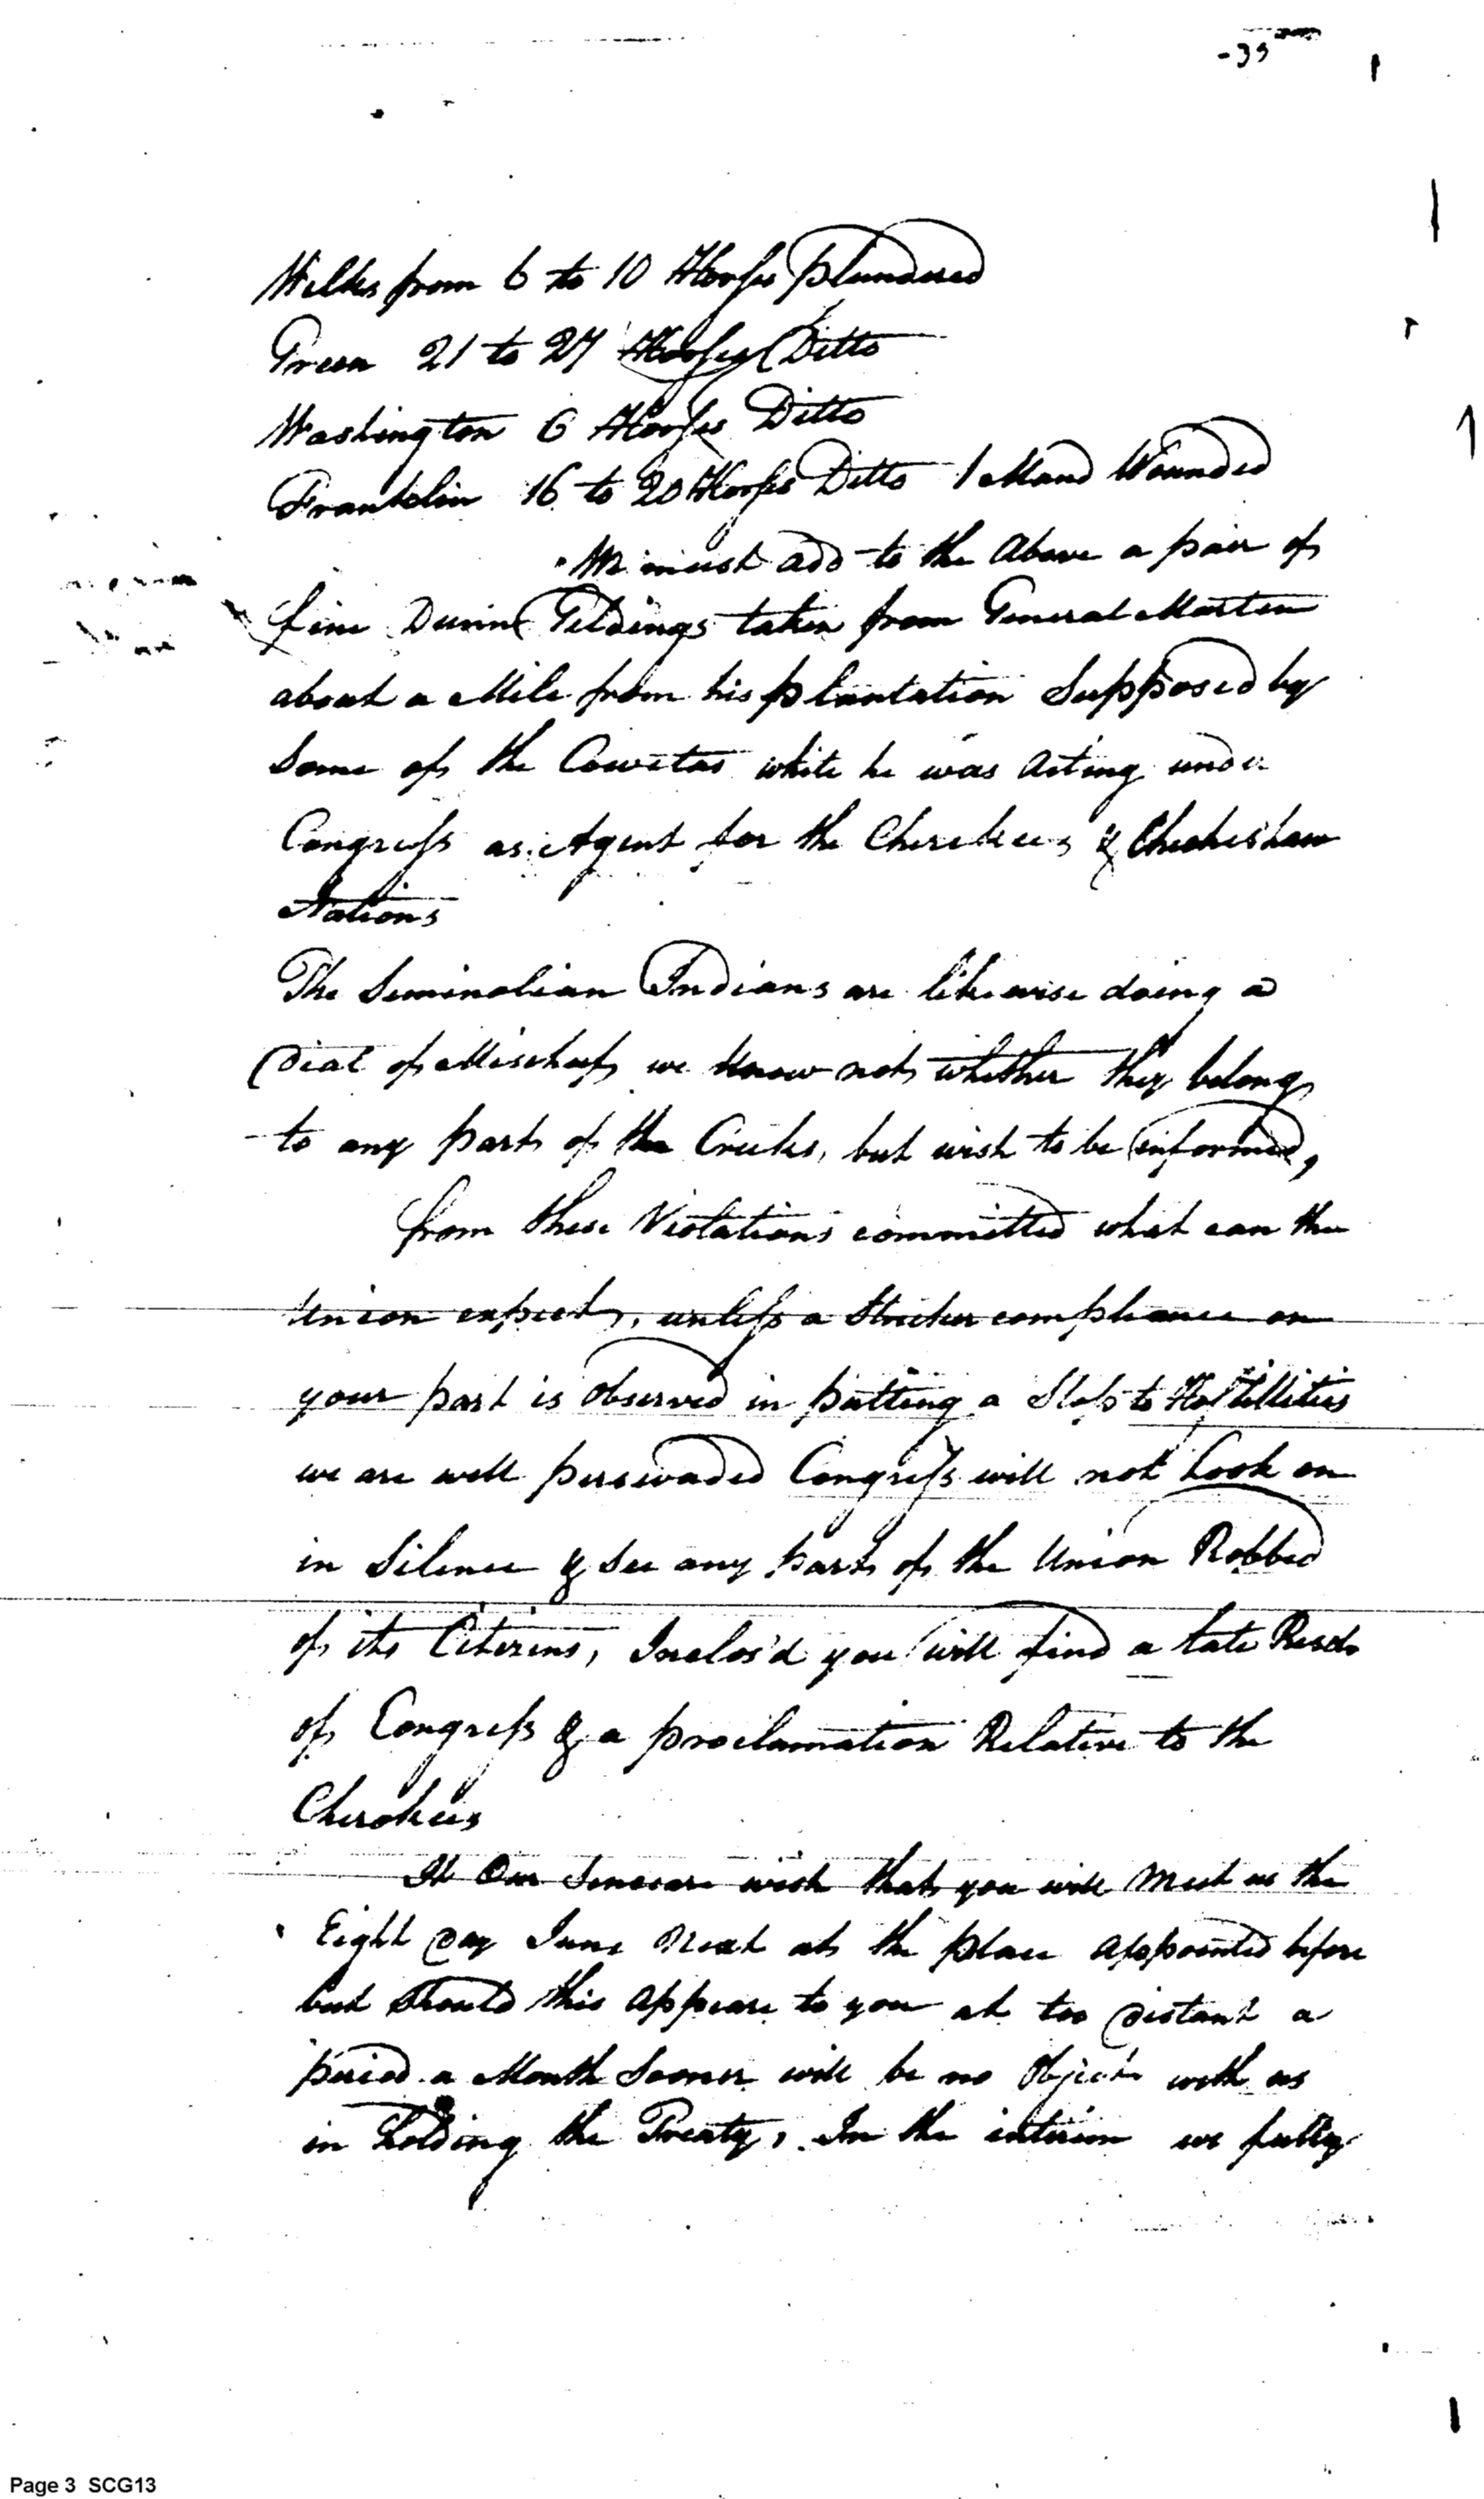 -39
Wilkes from 6 to 10 Horses plundered
Green 21 to 27 Horses Ditto
Washington 6 Horses Ditto
Franklin 16 to 20 Horses Ditto 1 Mand Wounded
We must add to the above a pair of
fine Geldings taken from General Martin
about a Mile from his plantation Supposed by
Some of the Cowetas while he was Acting under
Congress as Agent for the Cherekees & Checkeshaw
Nations
The Seminolian Indians are likewise doing a
Deal of Mischief, we know not whether they belong
to any part of the Creeks, but wish to be informed,
from these Violations committed what can the
Union expect, unless a Stricter compliance on
your part is Observed in putting a Stop to Hostillities
we are well perswaded Congress will not Look on
in Silence & See any part of the Union Robbed
of its Citizens, Inclos'd you will find a late
of Congress & a proclamation Relative to the
Cherokees
It Our Sincere wish that you will Meet us the
Eight Day June Next at the place Appointed before
but should this Appear to you at too Distant a
period a Month Sooner will be no Object with us
in Holding the Treaty, In the interim we fully
Page 3 SCG13